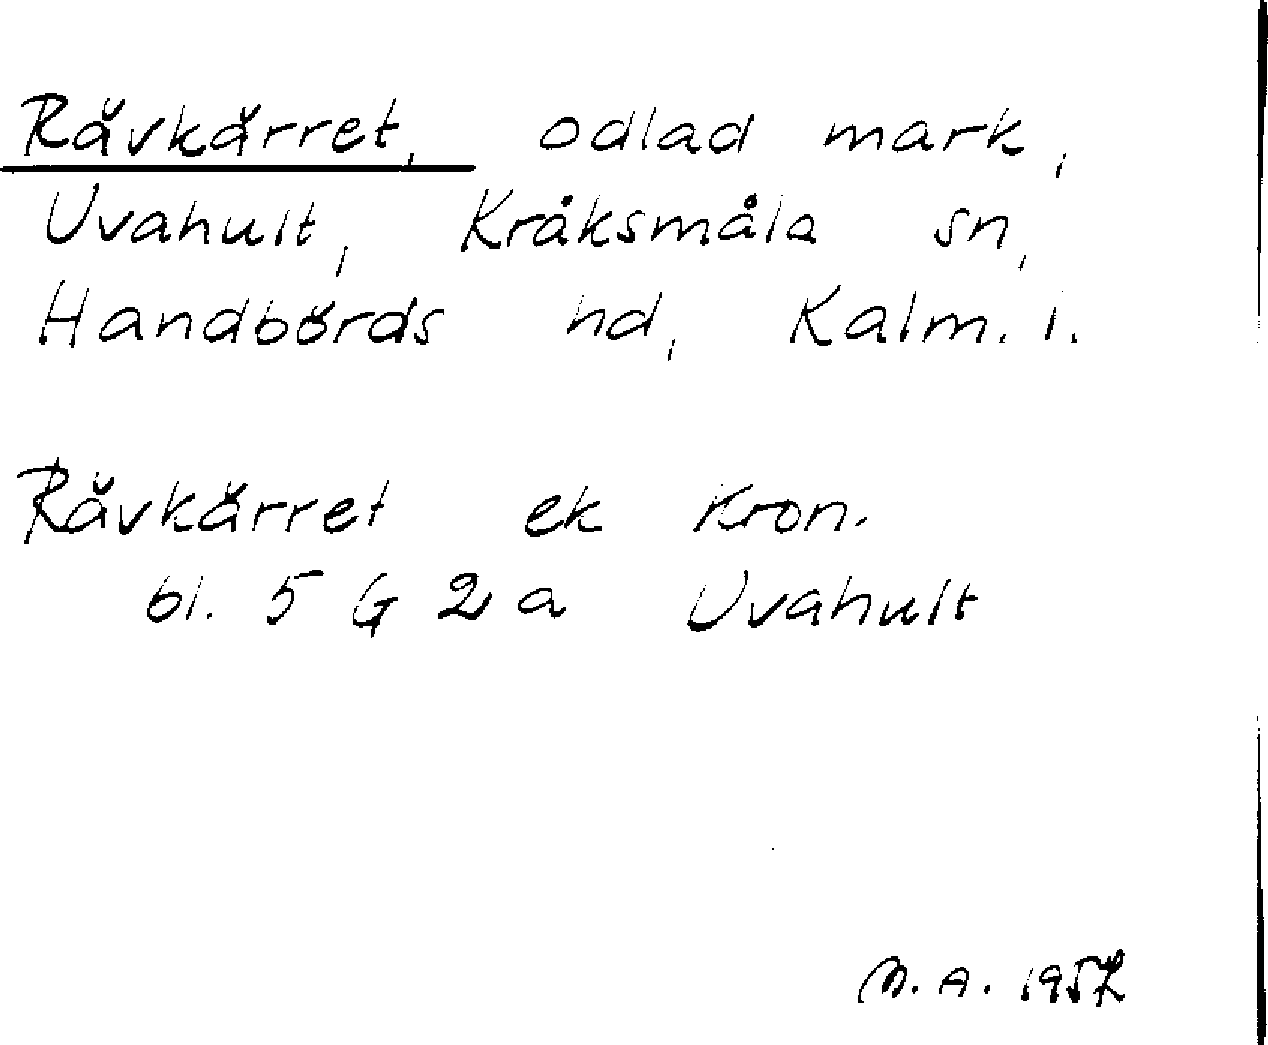 Rävkärret, odlad mark,
Uvahult, Kråksmåla sn,
Handbörds hd, Kalm. l.
Rävkärret ek Kron.
bl. 5 G 2 a Uvahult
N. A. 1957